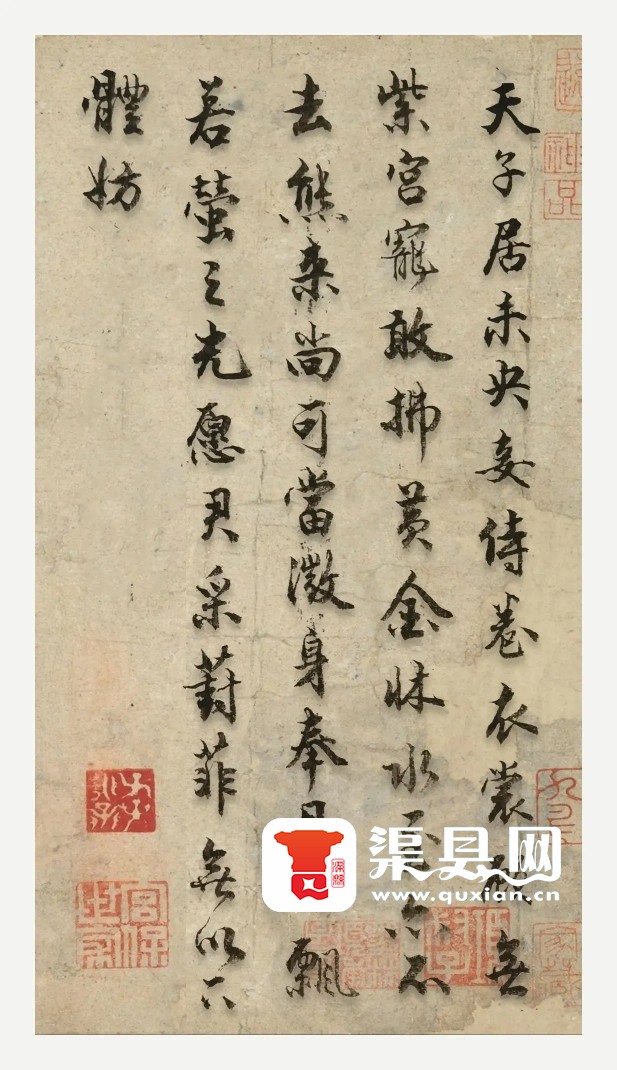 天子居未央妾侍卷衣裳無
紫宮寵敢拂黄金牀水至亦不
去熊来尚可當微身奉飄
若螢之光愿君采葑菲無以下
體妨
渠县网
www.quxian.cn
神品
宮保